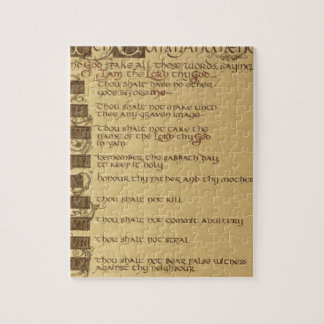 Commandments
And God spake all these words, saying,
I am the Lord thy God...
Thou shalt have no other
gods before me
Thou shalt not make unto
thee any graven image
Thou shalt not take the
name of the Lord thy God
in vain
Remember the sabbath day
to keep it holy
honour thy father and thy mother
Thou shalt not kill
Thou shalt not commit adultery
Thou shalt not steal
VIII
Thou shalt not bear false witness
against thy neighbour